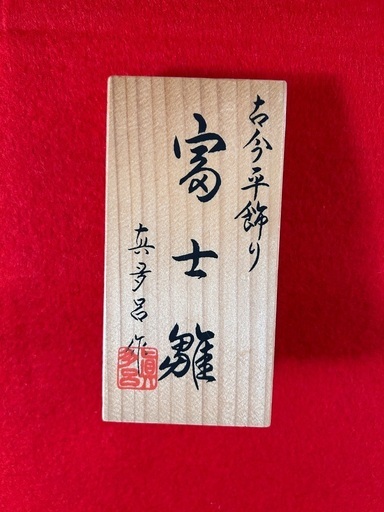 古今平飾り
富士雛
真多呂作
真多呂